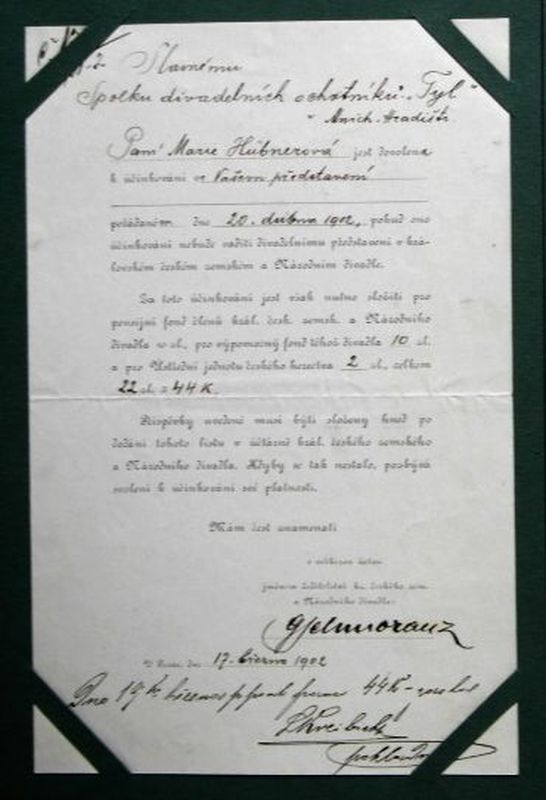 Slavnému
Spolku divadelních ochotníků „Tyl“
Mnich. Hradišti
Paní Marie Hübnerová jest dovolena
k účinkování ve Vašem představení
pořádaném dne 20. dubna 1902, pokud ono
účinkování nebude vaditi divadelnímu představení v krá-
lovském českém zemském a Národním divadle.
Za toto účinkování jest však nutno složiti pro
pensijní fond členů král. česk. zemsk. a Národního
divadla zl., pro výpomocný fond téhož divadla 10 zl.
a pro Ústřední jednotu českého herectva 2 zl., celkem
22 zl. = 44 K.
Příspěvky uvedené musí býti složeny hned po
dodání tohoto listu v účtárně král. českého zemského
a Národního divadla. Kdyby se tak nestalo, pozbývá
svolení k účinkování své platnosti.
Mám čest znamenati
v úctou
českého zem.
a Národního divadla:
GSchmoranz
V Praze, dne 17. března 1902
Dne 19 44 K